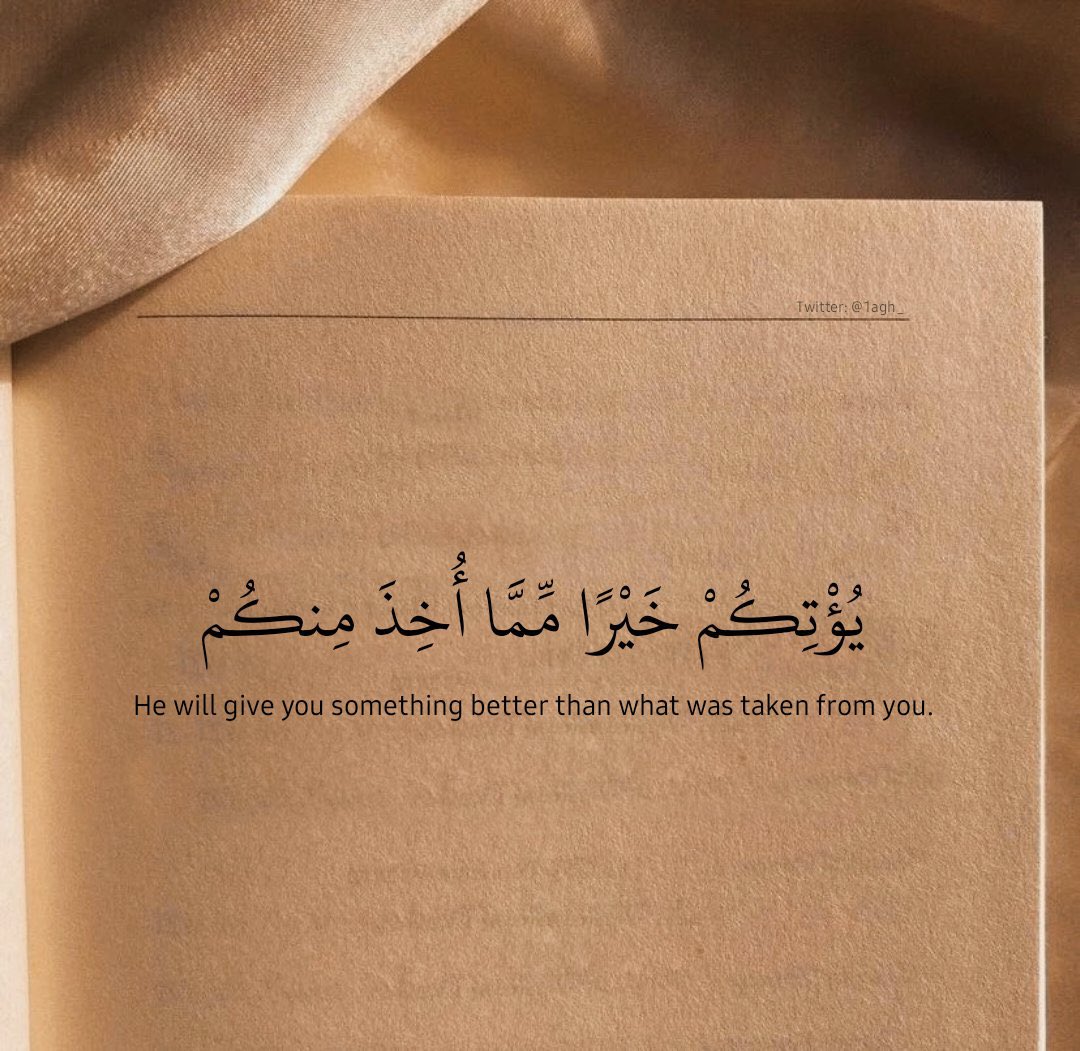 Twitter: @1agh_
يُؤْتِكُمْ خَيْرًا مِّمَّا أُخِذَ مِنكُمْ
He will give you something better than what was taken from you.